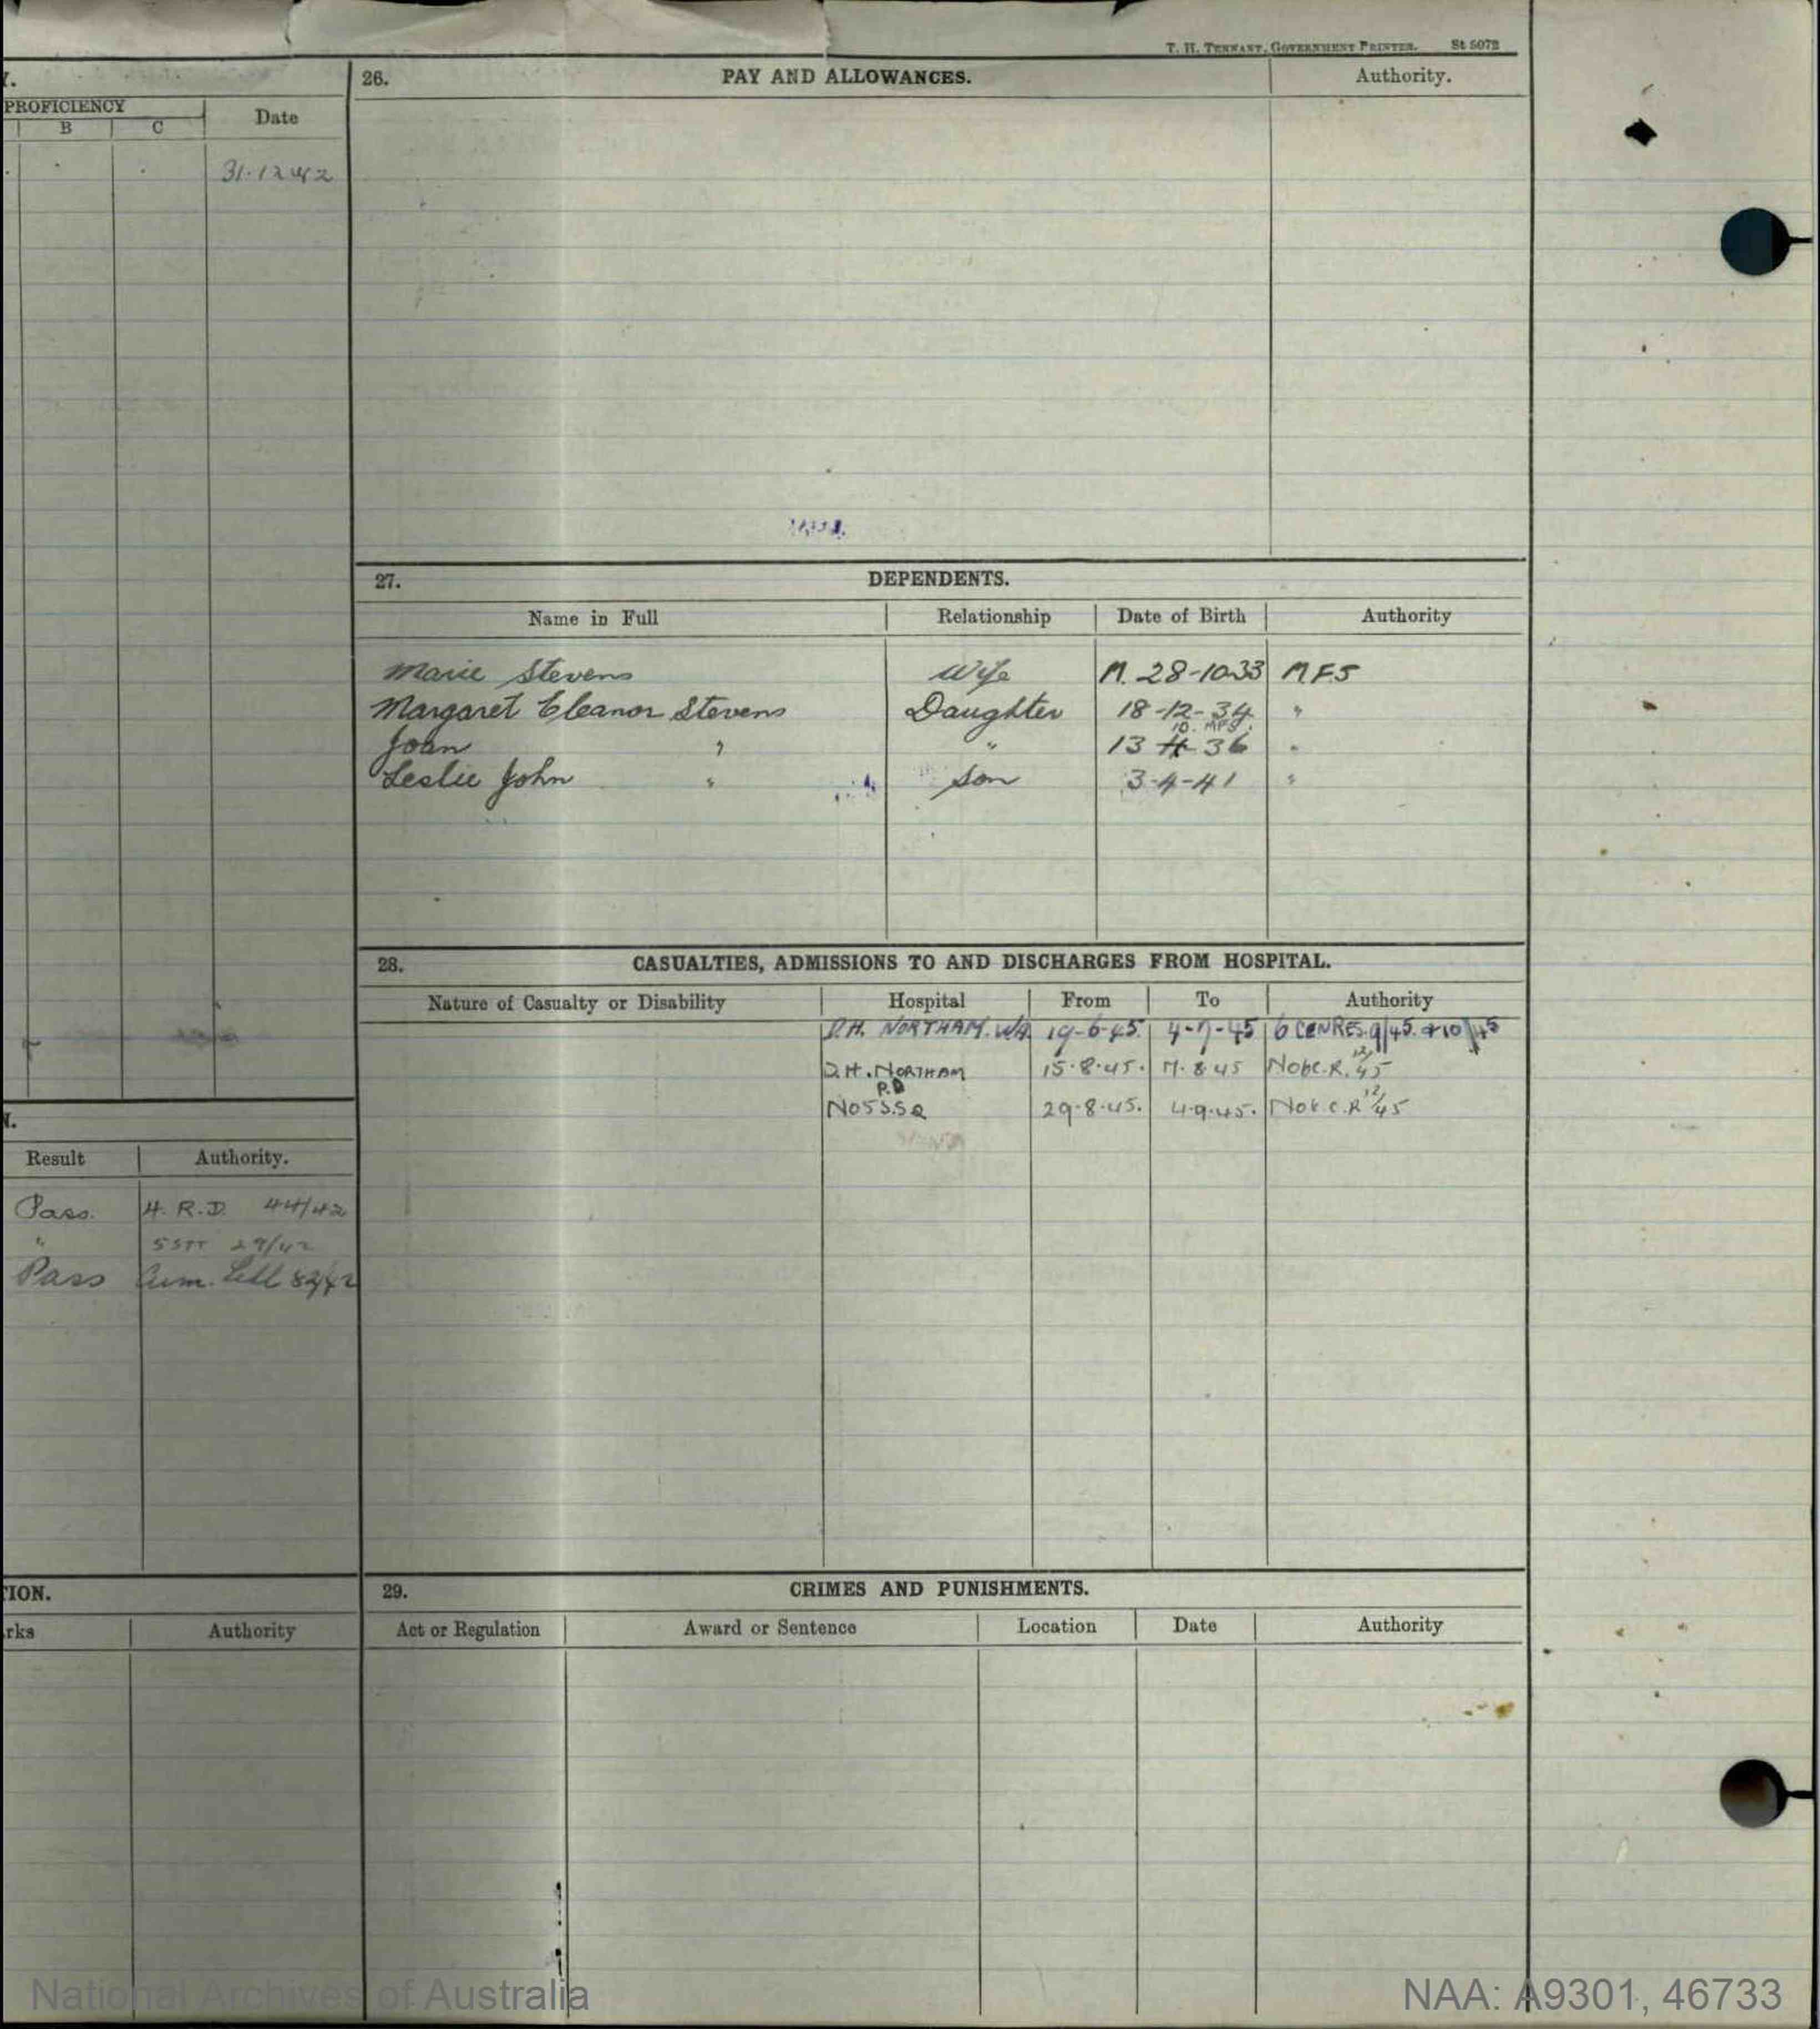 T. H. TENNANT, GOVERNMENT PRINTER. St 5072
PROFICIENCY
B C Date
31-12-42
26. PAY AND ALLOWANCES. Authority.
27. DEPENDENTS.
Name in Full Relationship Date of Birth Authority
Marie Stevens Wife M. 28-10-33 MFS
Margaret Eleanor Stevens Daughter 18-12-34 "
10. MFS.
Joan " " 13 36 "
Leslie John " Son 3-4-41 "
28. CASUALTIES, ADMISSIONS TO AND DISCHARGES FROM HOSPITAL.
Nature of Casualty or Disability Hospital From To Authority
D.H. NORTHAM. WA. 19-6-45. 4-7-45 6 CENRES. 9/45. & 10/45
D.H. NORTHAM 15.8.45. 17.8.45 No6C.R. 12/45
P.D
No5 S.S.Q 29.8.45. 4.9.45. No6.C.R 12/45
N.
Result Authority.
Pass. 4. R.D. 44/42
" 5STT 29/42
Pass 82/42
TION.
rks Authority
29. CRIMES AND PUNISHMENTS.
Act or Regulation Award or Sentence Location Date Authority
National Archives of Australia NAA: A9301, 46733